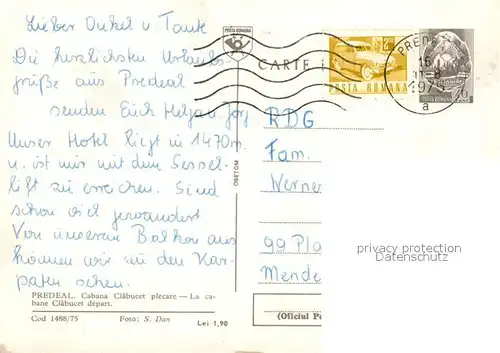 Lieber Onkel u. Tante
Die herzlichsten Urlaubs-
grüße aus Predeal
senden Euch Helga u. Jörg
Unser Hotel liegt in 1470m
u. ist nur mit dem Sessel-
lift zu erreichen. Sind
schon viel gewandert
Von unserem Balkon aus
können wir zu den Kar-
paten sehen.
PREDEAL. Cabana Clăbucet plecare — La ca-
bane Clăbucet départ.
Cod 1488/75 Foto: S. Dan Lei 1,90
POSTA ROMANA
CARTE
POSTA ROMANA
PREDEAL
1975
a
OSETCM
RDG
Fam.
Werner
99 Pla
Mende
(Oficiul P
privacy protection
Datenschutz